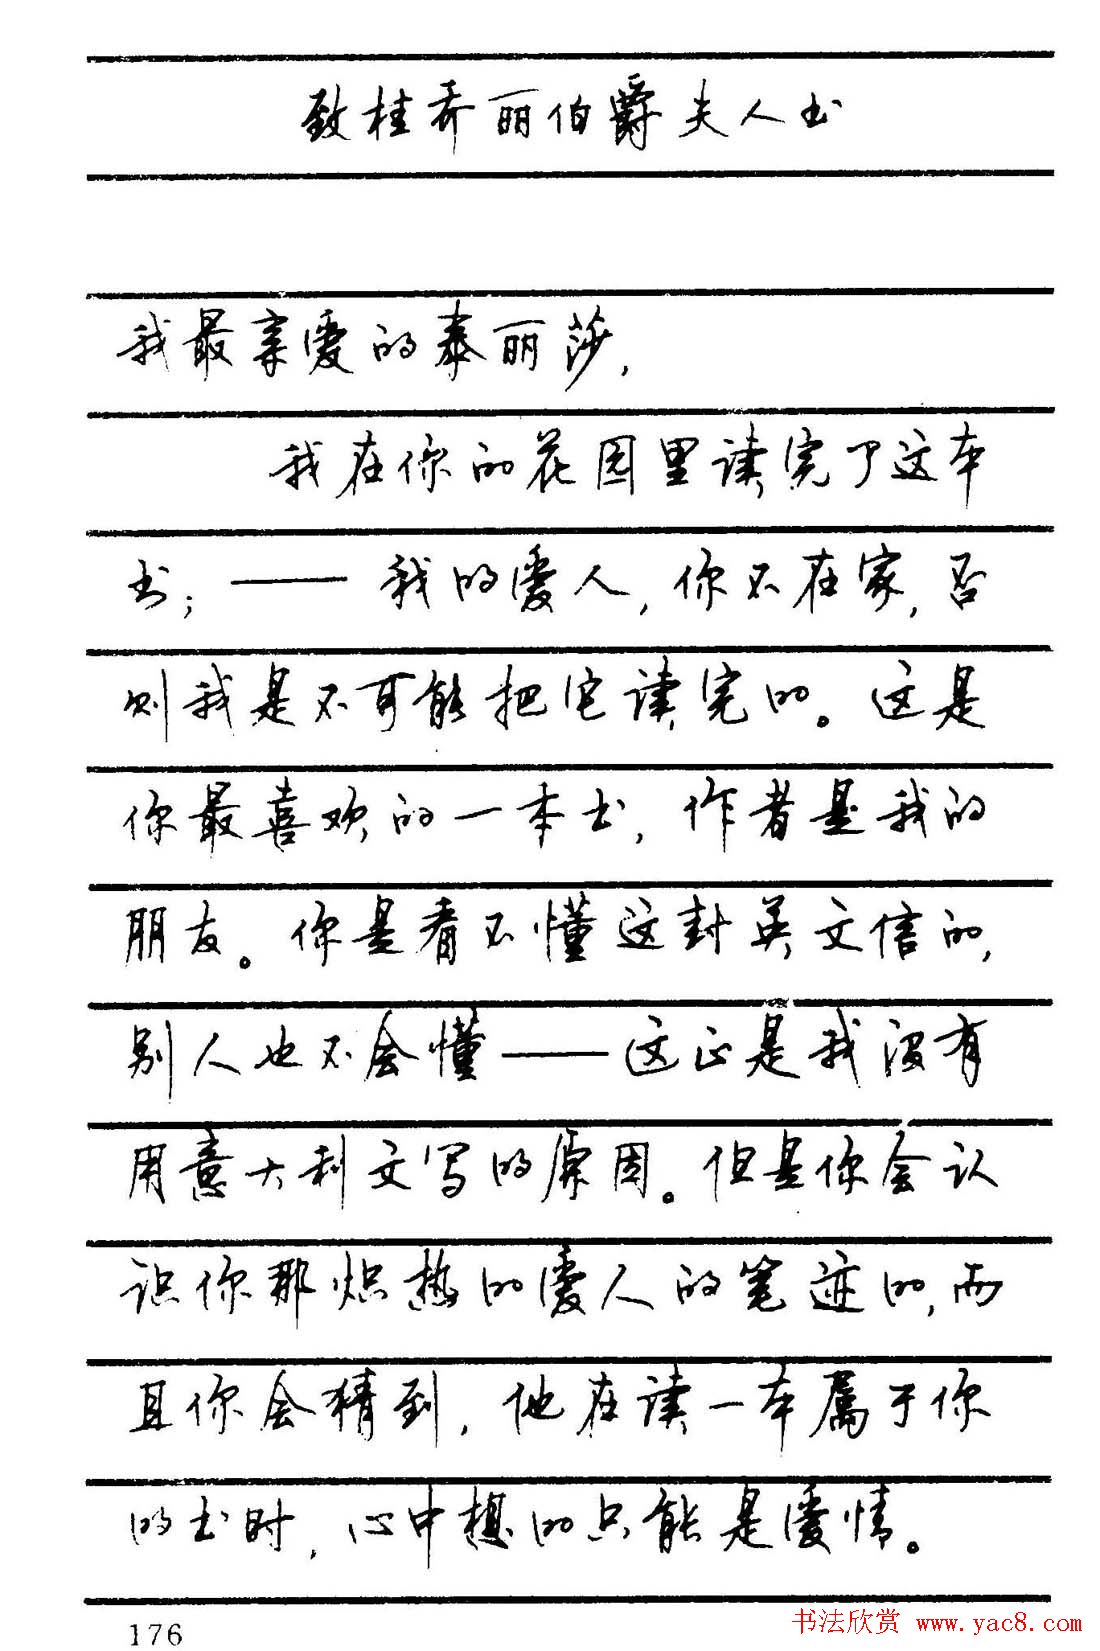 致桂乔丽伯爵夫人书
我最亲爱的泰丽莎,
我在你的花园里读完了这本
书;——我的爱人,你不在家,否
则我是不可能把它读完的。这是
你最喜欢的一本书,作者是我的
朋友。你是看不懂这封英文信的,
别人也不会懂——这正是我没有
用意大利文写的原因。但是你会认
识你那炽热的爱人的笔迹的,而
且你会猜到,他在读一本属于你
的书时,心中想的只能是爱情。
176
书法欣赏 www.yac8.com